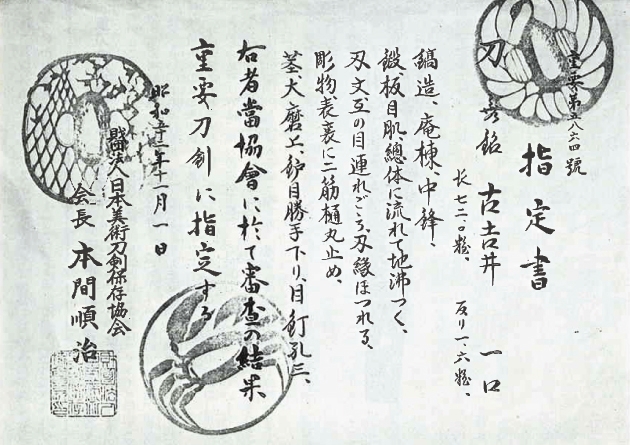 重要第五八六四號
指定書
刀 無銘 古吉井 一口
長七二・〇糎、 反リ一・六糎、
鎬造、庵棟、中鋒、
鍛板目肌、總体に流れて地沸つく、
刃文互の目連れごころ、刃縁ほつれる、
彫物表裏に二筋樋丸止め、
茎大磨上、鑢目勝手下り、目釘孔三、
右者當協會に於て審査の結果
重要刀剣に指定する
昭和五二年十一月一日
財團法人日本美術刀剣保存協会
会長 本間順治